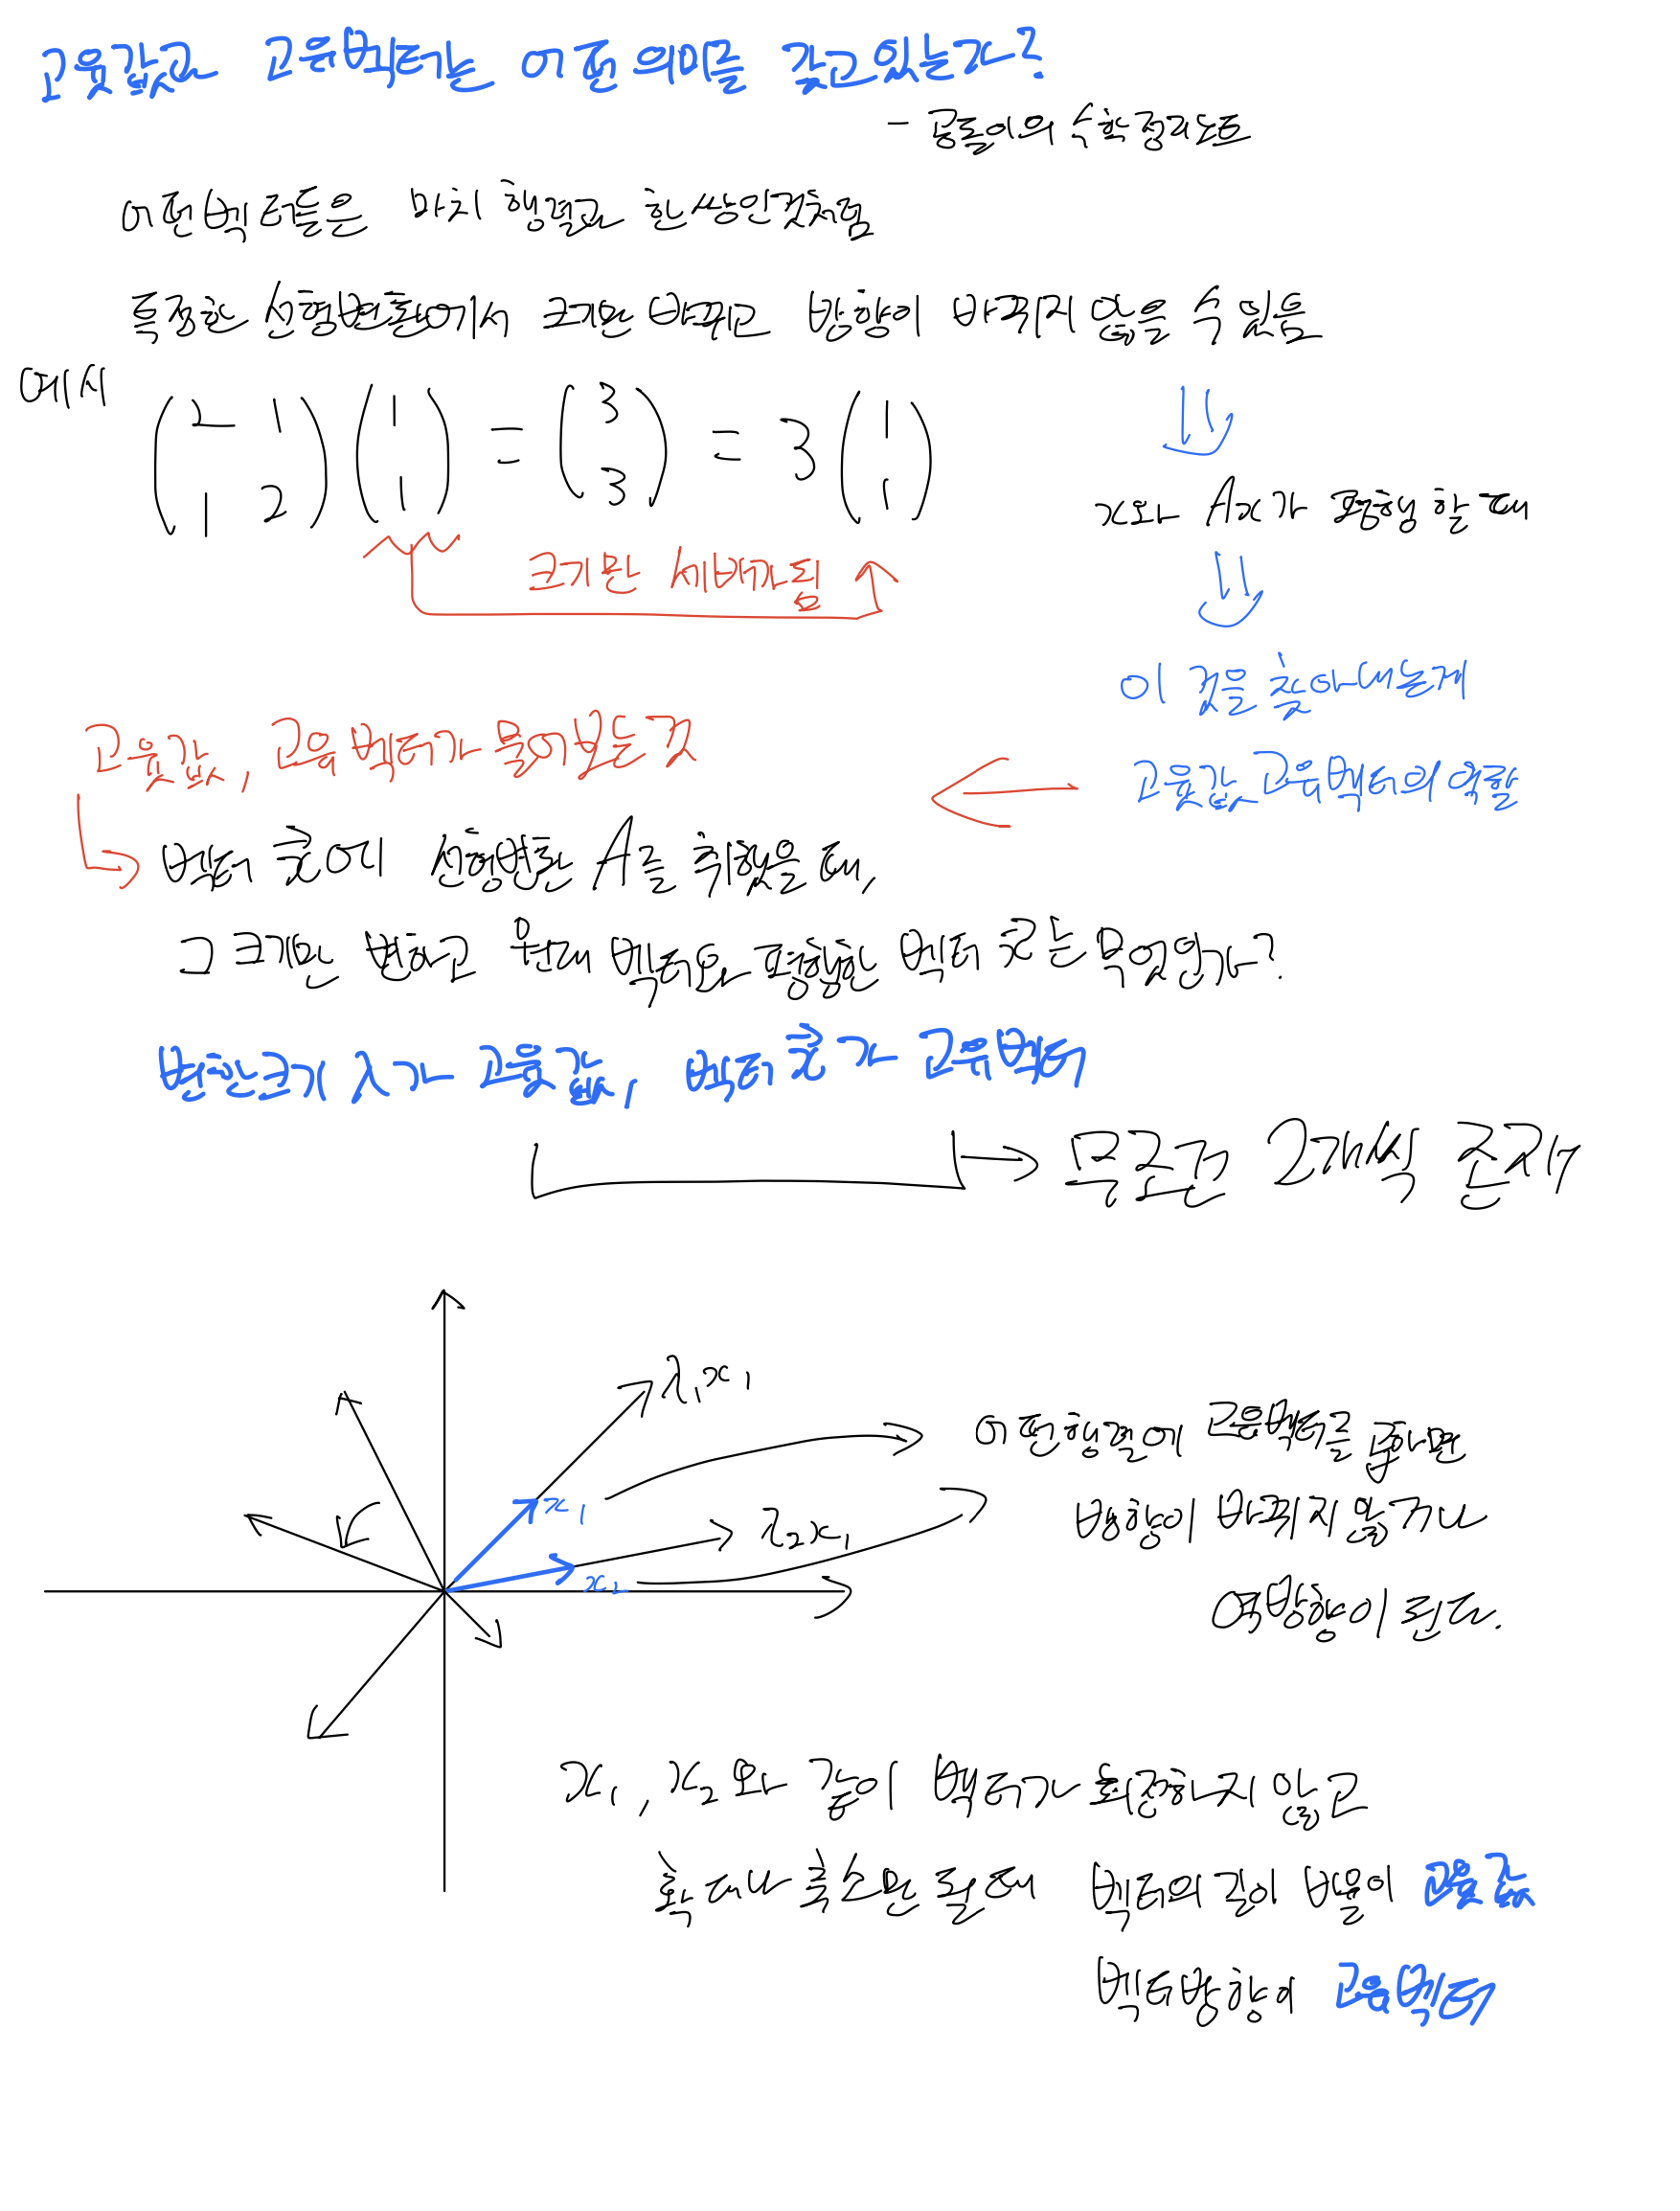 고윳값과 고유벡터는 어떤 의미를 갖고있는가?
- 공돌이의 수학정리노트
어떤벡터들은 마치 행렬과 한쌍인것처럼
특정한 선형변환에서 크기만 바뀌고 방향이 바뀌지 않을 수 있음
예시
(2 1
1 2) (1
1) = (3
3) = 3 (1
1)
x와 Ax가 평행 할 때
크기만 세배가됨
이 것을 찾아내는게
고윳값 고유벡터의 역할
고윳값, 고유벡터가 물어보는것
벡터 x⃗에 선형변환 A를 취했을 때,
그 크기만 변하고 원래 벡터와 평행한 벡터 x⃗는 무엇인가?
변한크기 λ가 고윳값, 벡터 x⃗가 고유벡터
무조건 2개씩 존재
λ₁x₁
x₁
λ₂x₁
x₂
어떤행렬에 고유벡터를 곱하면
방향이 바뀌지 않거나
역방향이 된다.
x₁, x₂와 같이 벡터가 회전하지 않고
확대나 축소만 될때 벡터의 길이 비율이 고윳값
벡터방향이 고유벡터